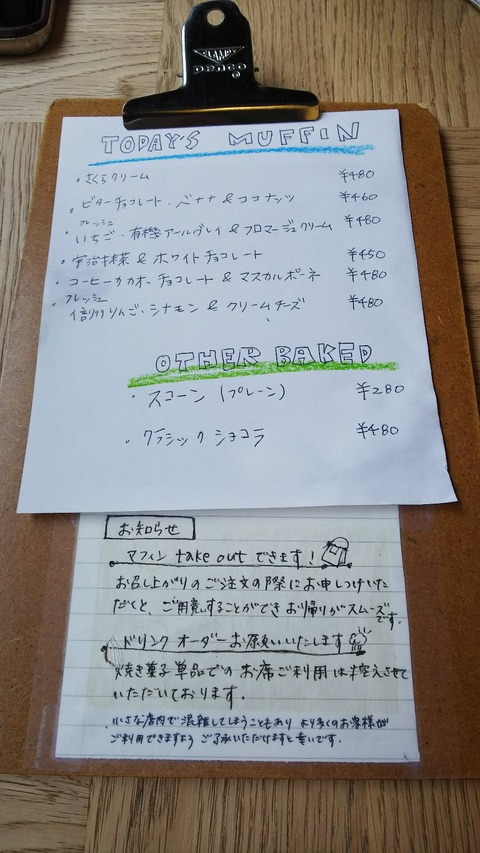 TODAY'S MUFFIN
・さくらクリーム ¥480
・ビターチョコレート・バナナ & ココナッツ ¥460
フレッシュ
・いちご・有機アールグレイ & フロマージュクリーム ¥480
・宇治抹茶 & ホワイトチョコレート ¥450
・コーヒーカカオ・チョコレート & マスカルポーネ ¥480
フレッシュ
・信州りんご・シナモン & クリームチーズ ¥480
OTHER BAKED
・スコーン (プレーン) ¥280
・クラシックショコラ ¥480
お知らせ
マフィン take outできます!
お召し上がりのご注文の際にお申しつけいた
だくと、ご用意することができお帰りがスムーズです。
ドリンクオーダーお願いいたします
焼き菓子単品でのお席ご利用は控えさせて
いただいております。
小さな店内で混雑してしまうこともあり より多くのお客様が
ご利用できますよう ご了承いただけますと幸いです。